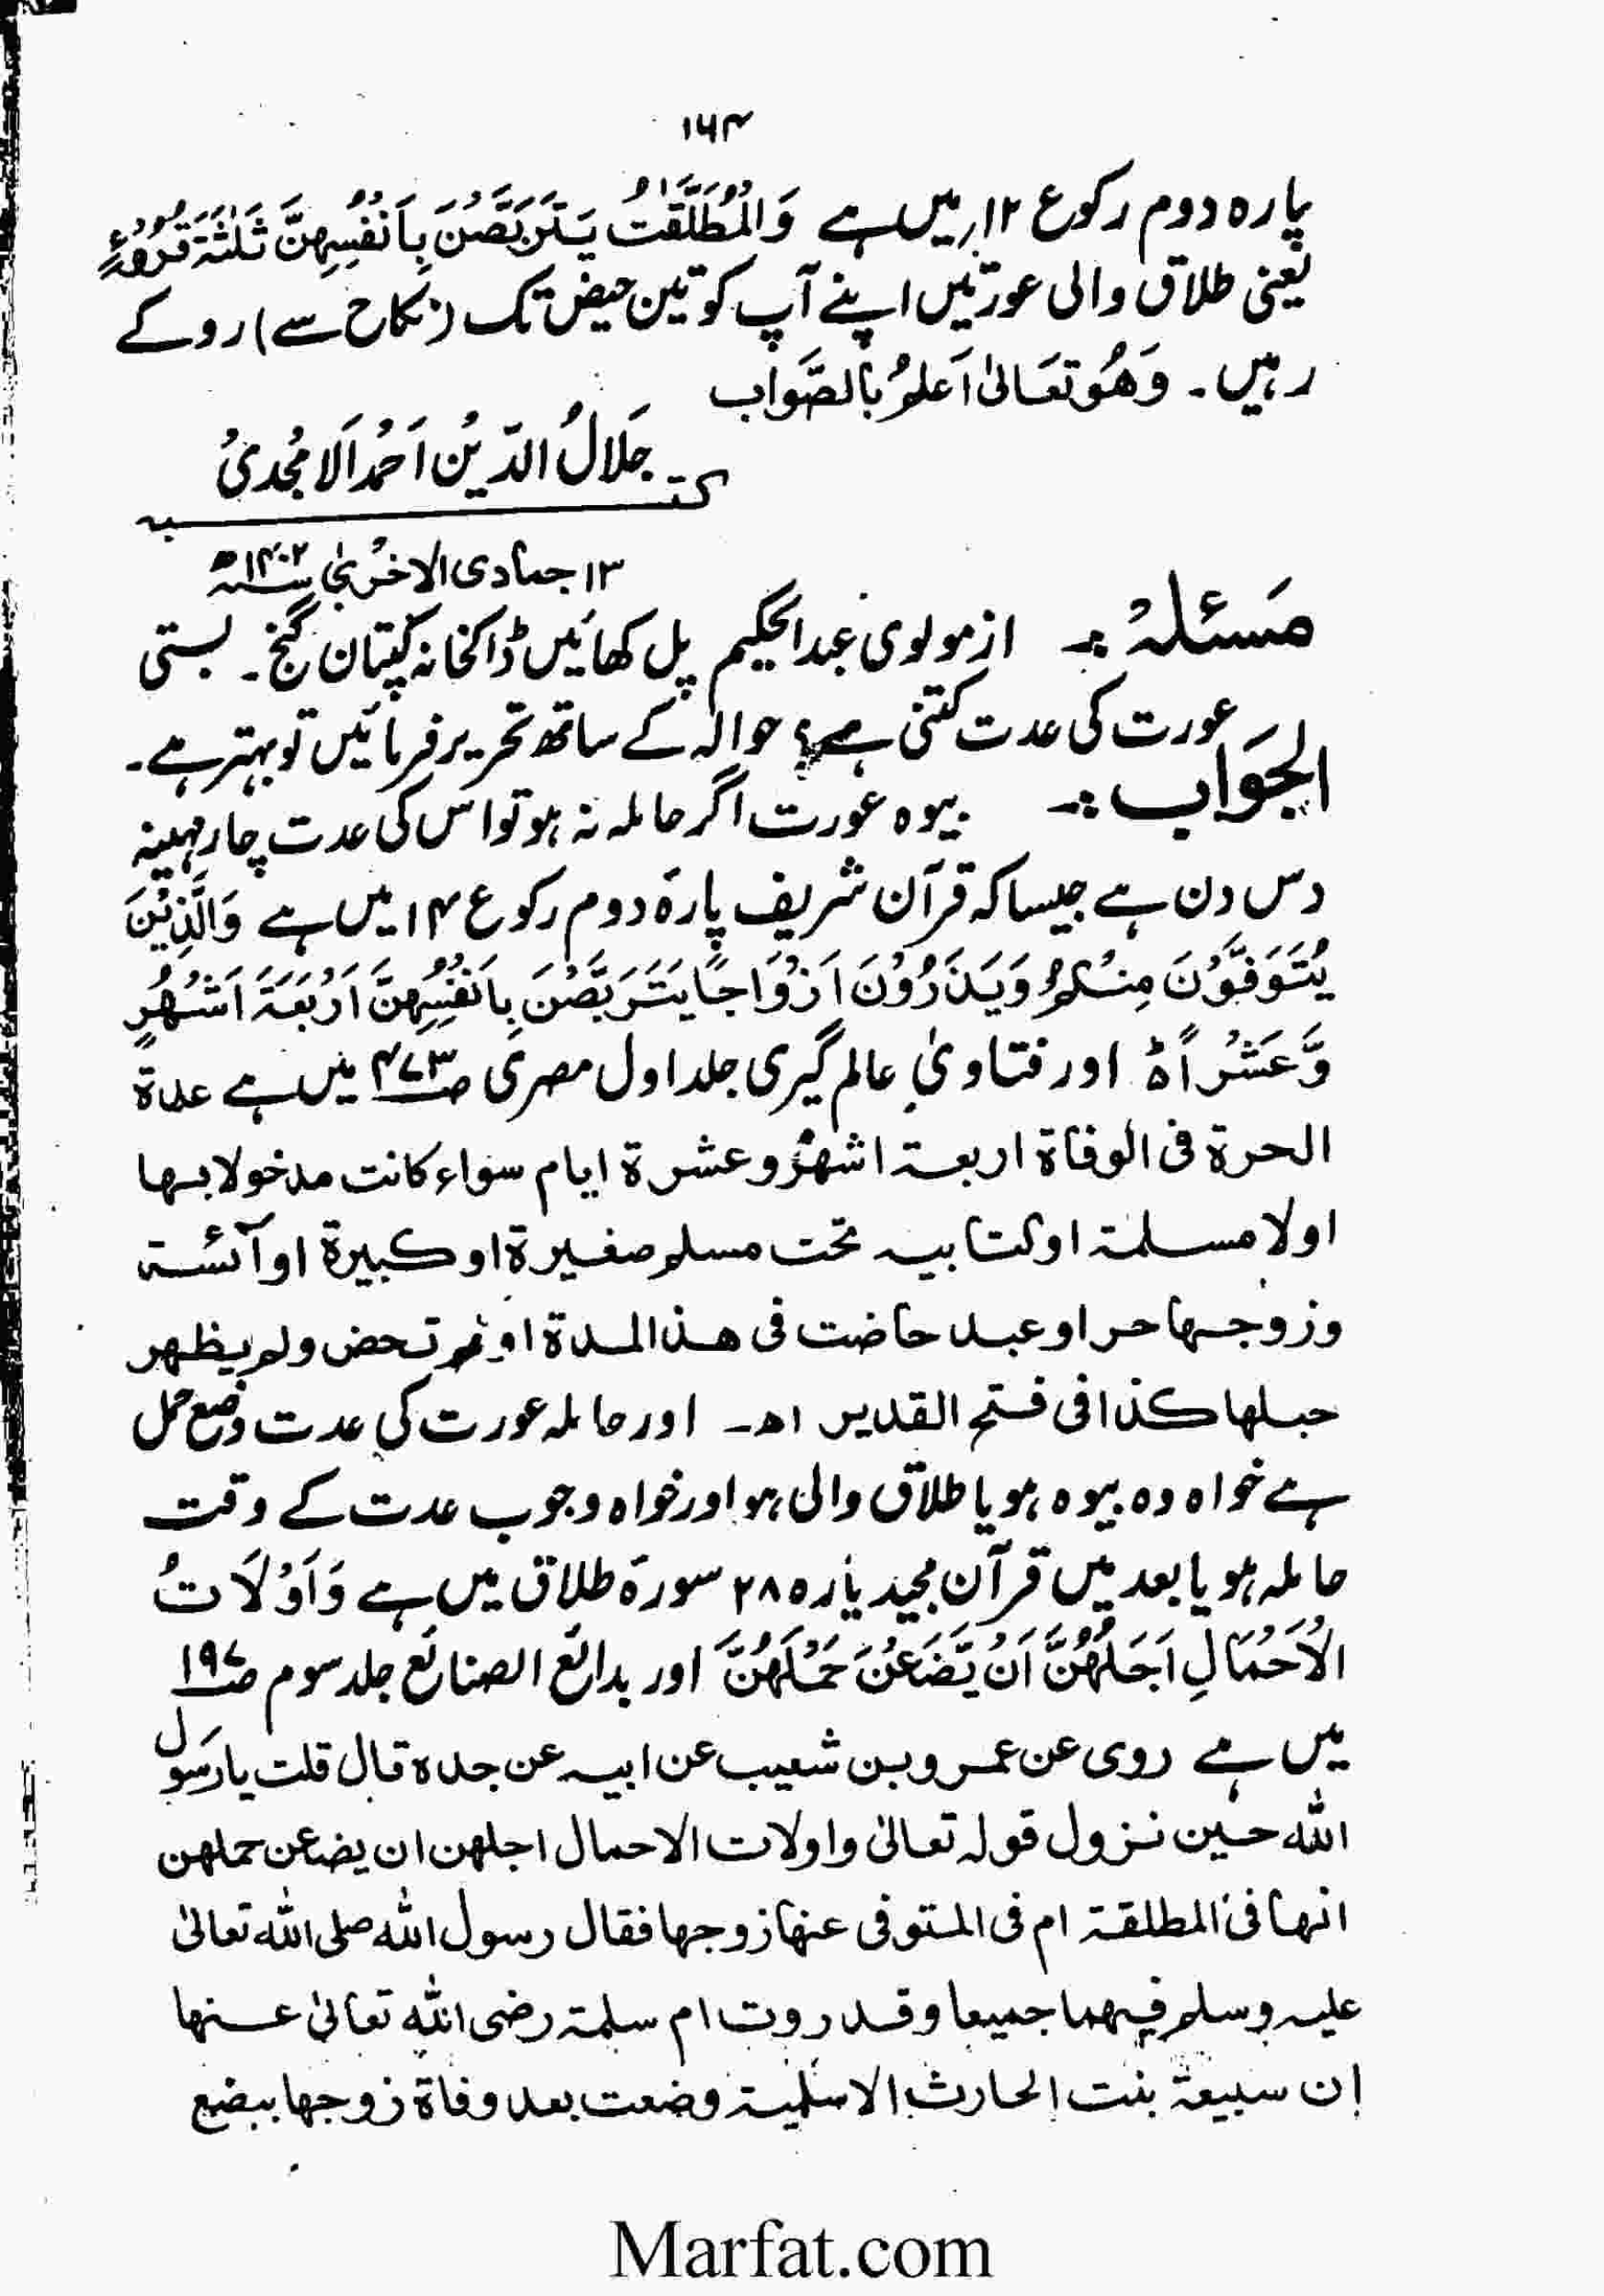 ۱۶۴
پارہ دوم رکوع ۱۲ میں ہے وَالْمُطَلَّقٰتُ یَتَرَبَّصْنَ بِاَنْفُسِهِنَّ ثَلٰثَةَ قُرُوْءٍ
یعنی طلاق والی عورتیں اپنے آپ کو تین حیض تک (نکاح سے) روکے
رہیں۔ وَھُوَ تَعَالیٰ اَعْلَمُ بِالصَّوَاب
جَلَالُ الدِّیْن اَحْمَد اَلامْجَدِیُ
کتبہ
۱۳ جمادی الاخریٰ ۱۴۰۲ھ
مَسئلہ:۔ از مولوی عبد الحکیم پل کھائیں ڈاکخانہ کپتان گنج۔ بستی
عورت کی عدت کتنی ہے؟ حوالہ کے ساتھ تحریر فرمائیں تو بہتر ہے۔
الجَوَاب:۔ بیوہ عورت اگر حاملہ نہ ہو تو اس کی عدت چار مہینہ
دس دن ہے جیسا کہ قرآن شریف پارۂ دوم رکوع ۱۴ میں ہے وَالَّذِیْنَ
یُتَوَفَّوْنَ مِنْكُمْ وَیَذَرُوْنَ اَزْوَاجًا یَتَرَبَّصْنَ بِاَنْفُسِهِنَّ اَرْبَعَةَ اَشْهُرٍ
وَّعَشْرًا اور فتاویٰ عالم گیری جلد اول مصری ص ۴۷۳ میں ہے عدة
الحرة فی الوفاة اربعة اشهر وعشرة ایام سواء کانت مدخولا بها
اولا مسلمة اوکتابیه تحت مسلم صغیرة او کبیرة او آئسة
وزوجها حر او عبد حاضت فی هذا المدة او لم تحض ولم یظهر
حبلها کذا فی فتح القدیر اھ۔ اور حاملہ عورت کی عدت وضع حمل
ہے خواہ وہ بیوہ ہو یا طلاق والی ہو اور خواہ وجوب عدت کے وقت
حاملہ ہو یا بعد میں قرآن مجید پارہ ۲۸ سورۂ طلاق میں ہے وَاُوْلَاتُ
الْاَحْمَالِ اَجَلُهُنَّ اَنْ یَّضَعْنَ حَمْلَهُنَّ اور بدائع الصنائع جلد سوم ص ۱۹۶
میں ہے روی عن عمرو بن شعیب عن ابیه عن جده قال قلت یا رسول
الله حین نزول قوله تعالیٰ واولات الاحمال اجلهن ان یضعن حملهن
انها فی المطلقة ام فی المتوفی عنها زوجها فقال رسول الله صلی الله تعالیٰ
علیه وسلم فیهما جمیعا وقد روت ام سلمة رضی الله تعالیٰ عنها
ان سبیعة بنت الحارث الاسلمیة وضعت بعد وفاة زوجها ببضع
Marfat.com